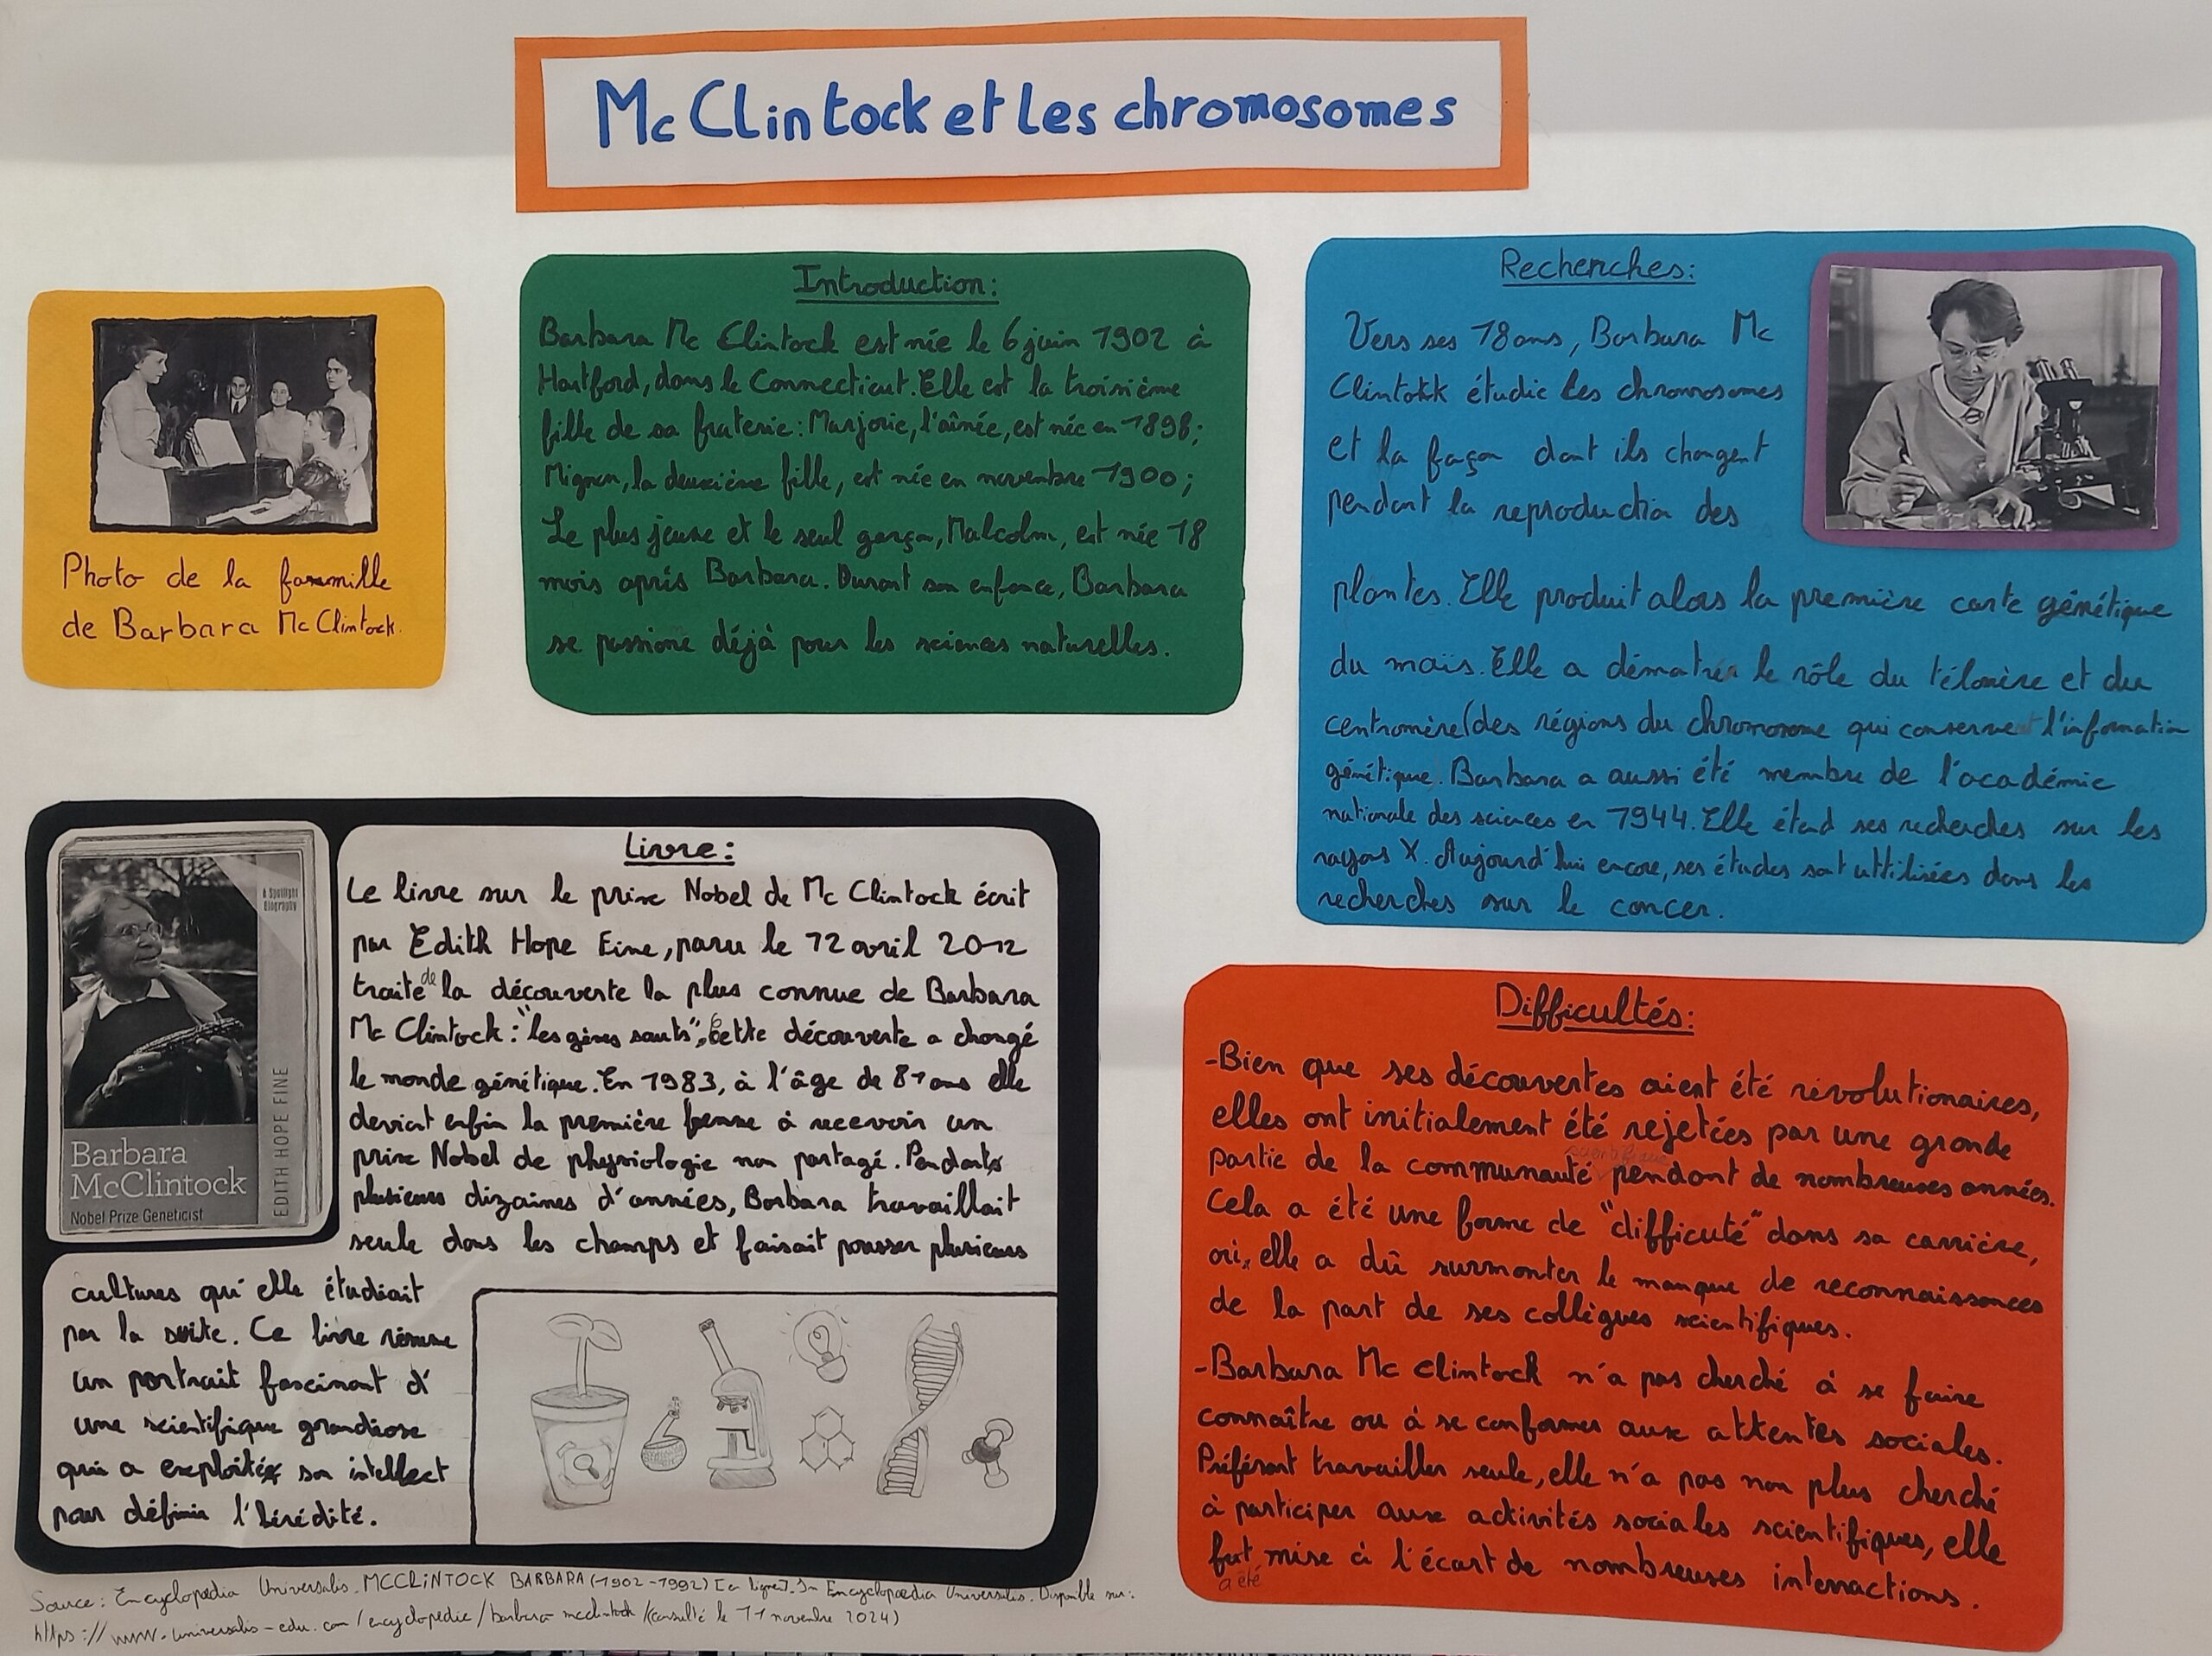 Mc Clintock et les chromosomes
Photo de la fammille
de Barbara McClintock.
Introduction:
Barbara Mc Clintock est née le 6 juin 1902 à
Hartford, dans le Connecticut. Elle est la troisième
fille de sa fraterie: Marjorie, l'aînée, est née en 1898;
Mignon, la deuxième fille, est née en novembre 1900;
Le plus jeune et le seul garçon, Malcolm, est née 18
mois après Barbara. Durant son enfance, Barbara
se passione déjà pour les sciences naturelles.
Recherches:
Vers ses 18 ans, Barbara Mc
Clintokk étudie les chromosomes
et la façon dont ils changent
pendant la reproduction des
plantes. Elle produit alors la première carte génétique
du maïs. Elle a démontrer le rôle du télomère et du
centromère (des régions du chromosome qui conservent l'information
génétique. Barbara a aussi été membre de l'académie
nationale des sciences en 1944. Elle étend ses recherches sur les
rayons X. Aujourd'hui encore, ses études sont uttilisées dans les
recherches sur le cancer.
Livre:
Le livre sur le prix Nobel de Mc Clintock écrit
par Edith Hope Fine, paru le 12 avril 2012
traite de la découverte la plus connue de Barbara
Mc Clintock: "les gènes sauts", Cette découverte a changé
le monde génétique. En 1983, à l'âge de 81 ans elle
devient enfin la première femme à recevoir un
prix Nobel de physiologie non partagé. Pendant
plusieurs dizaines d'années, Barbara travaillait
seule dans les champs et faisait pousser plusieurs
cultures qu'elle étudiait
par la suite. Ce livre résume
un portrait fascinant d'
une scientifique grandiose
qui a exploité son intellect
pour définir l'hérédité.
A Spotlight
Biography
EDITH HOPE FINE
Barbara
McClintock
Nobel Prize Geneticist
Difficultés:
-Bien que ses découvertes aient été révolutionaires,
elles ont initialement été rejetées par une grande
partie de la communauté scientifique pendant de nombreuses années.
Cela a été une forme de "difficuté" dans sa carrière,
où, elle a dû surmonter le manque de reconnaissances
de la part de ses collègues scientifiques.
-Barbara Mc Clintock n'a pas cherché à se faire
connaître ou à se conformer aux attentes sociales.
Préférant travailler seule, elle n'a pas non plus cherché
à participer aux activités sociales scientifiques, elle
fut mise à l'écart de nombreuses interractions.
a été
Source: Encyclopædia Universalis. MCCLINTOCK BARBARA (1902-1992) [en ligne]. In Encyclopædia Universalis. Disponible sur:
https://www.universalis-edu.com/encyclopedie/barbara-mcclintock/(consulté le 11 novembre 2024)